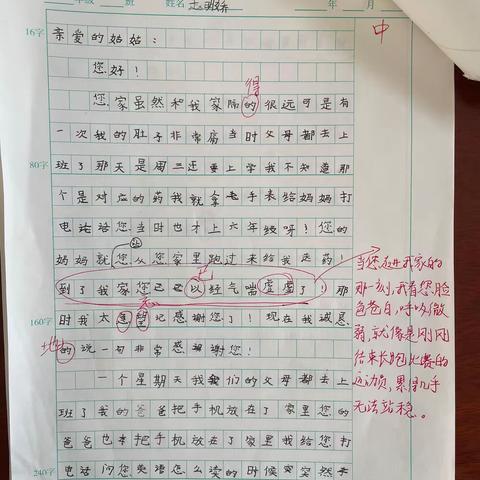 年级 班 姓名 年 月
16字 亲爱的姑姑: 中
您好!
得
您家虽然和我家隔的很远可是有
一次我的肚子非常痛当时父母都去上
80字 班了那天是周三还要上学我不知道那
个是对应的药我就拿老手表给妈妈打
电话话您当时也才上六年级呀!您的
让
妈妈就您从您家里跑过来给我送药!
到了我家您已已以经气喘虚虚了!那
160字 时我太 记感谢您了!现在我诚恳
地
的说一句非常感谢谢您!
一个星期天我我们的父母都去上
班了我的爸爸把手机放在了家里您的
爸爸也把手机放在了家里我给您打
240字 电话问您英语怎么读的时候突突然
当您走进我家的
那一刻,我看您脸
色苍白,呼吸微
弱,就像是刚刚
结束长跑比赛的
运动员,累得几乎
无法站稳。